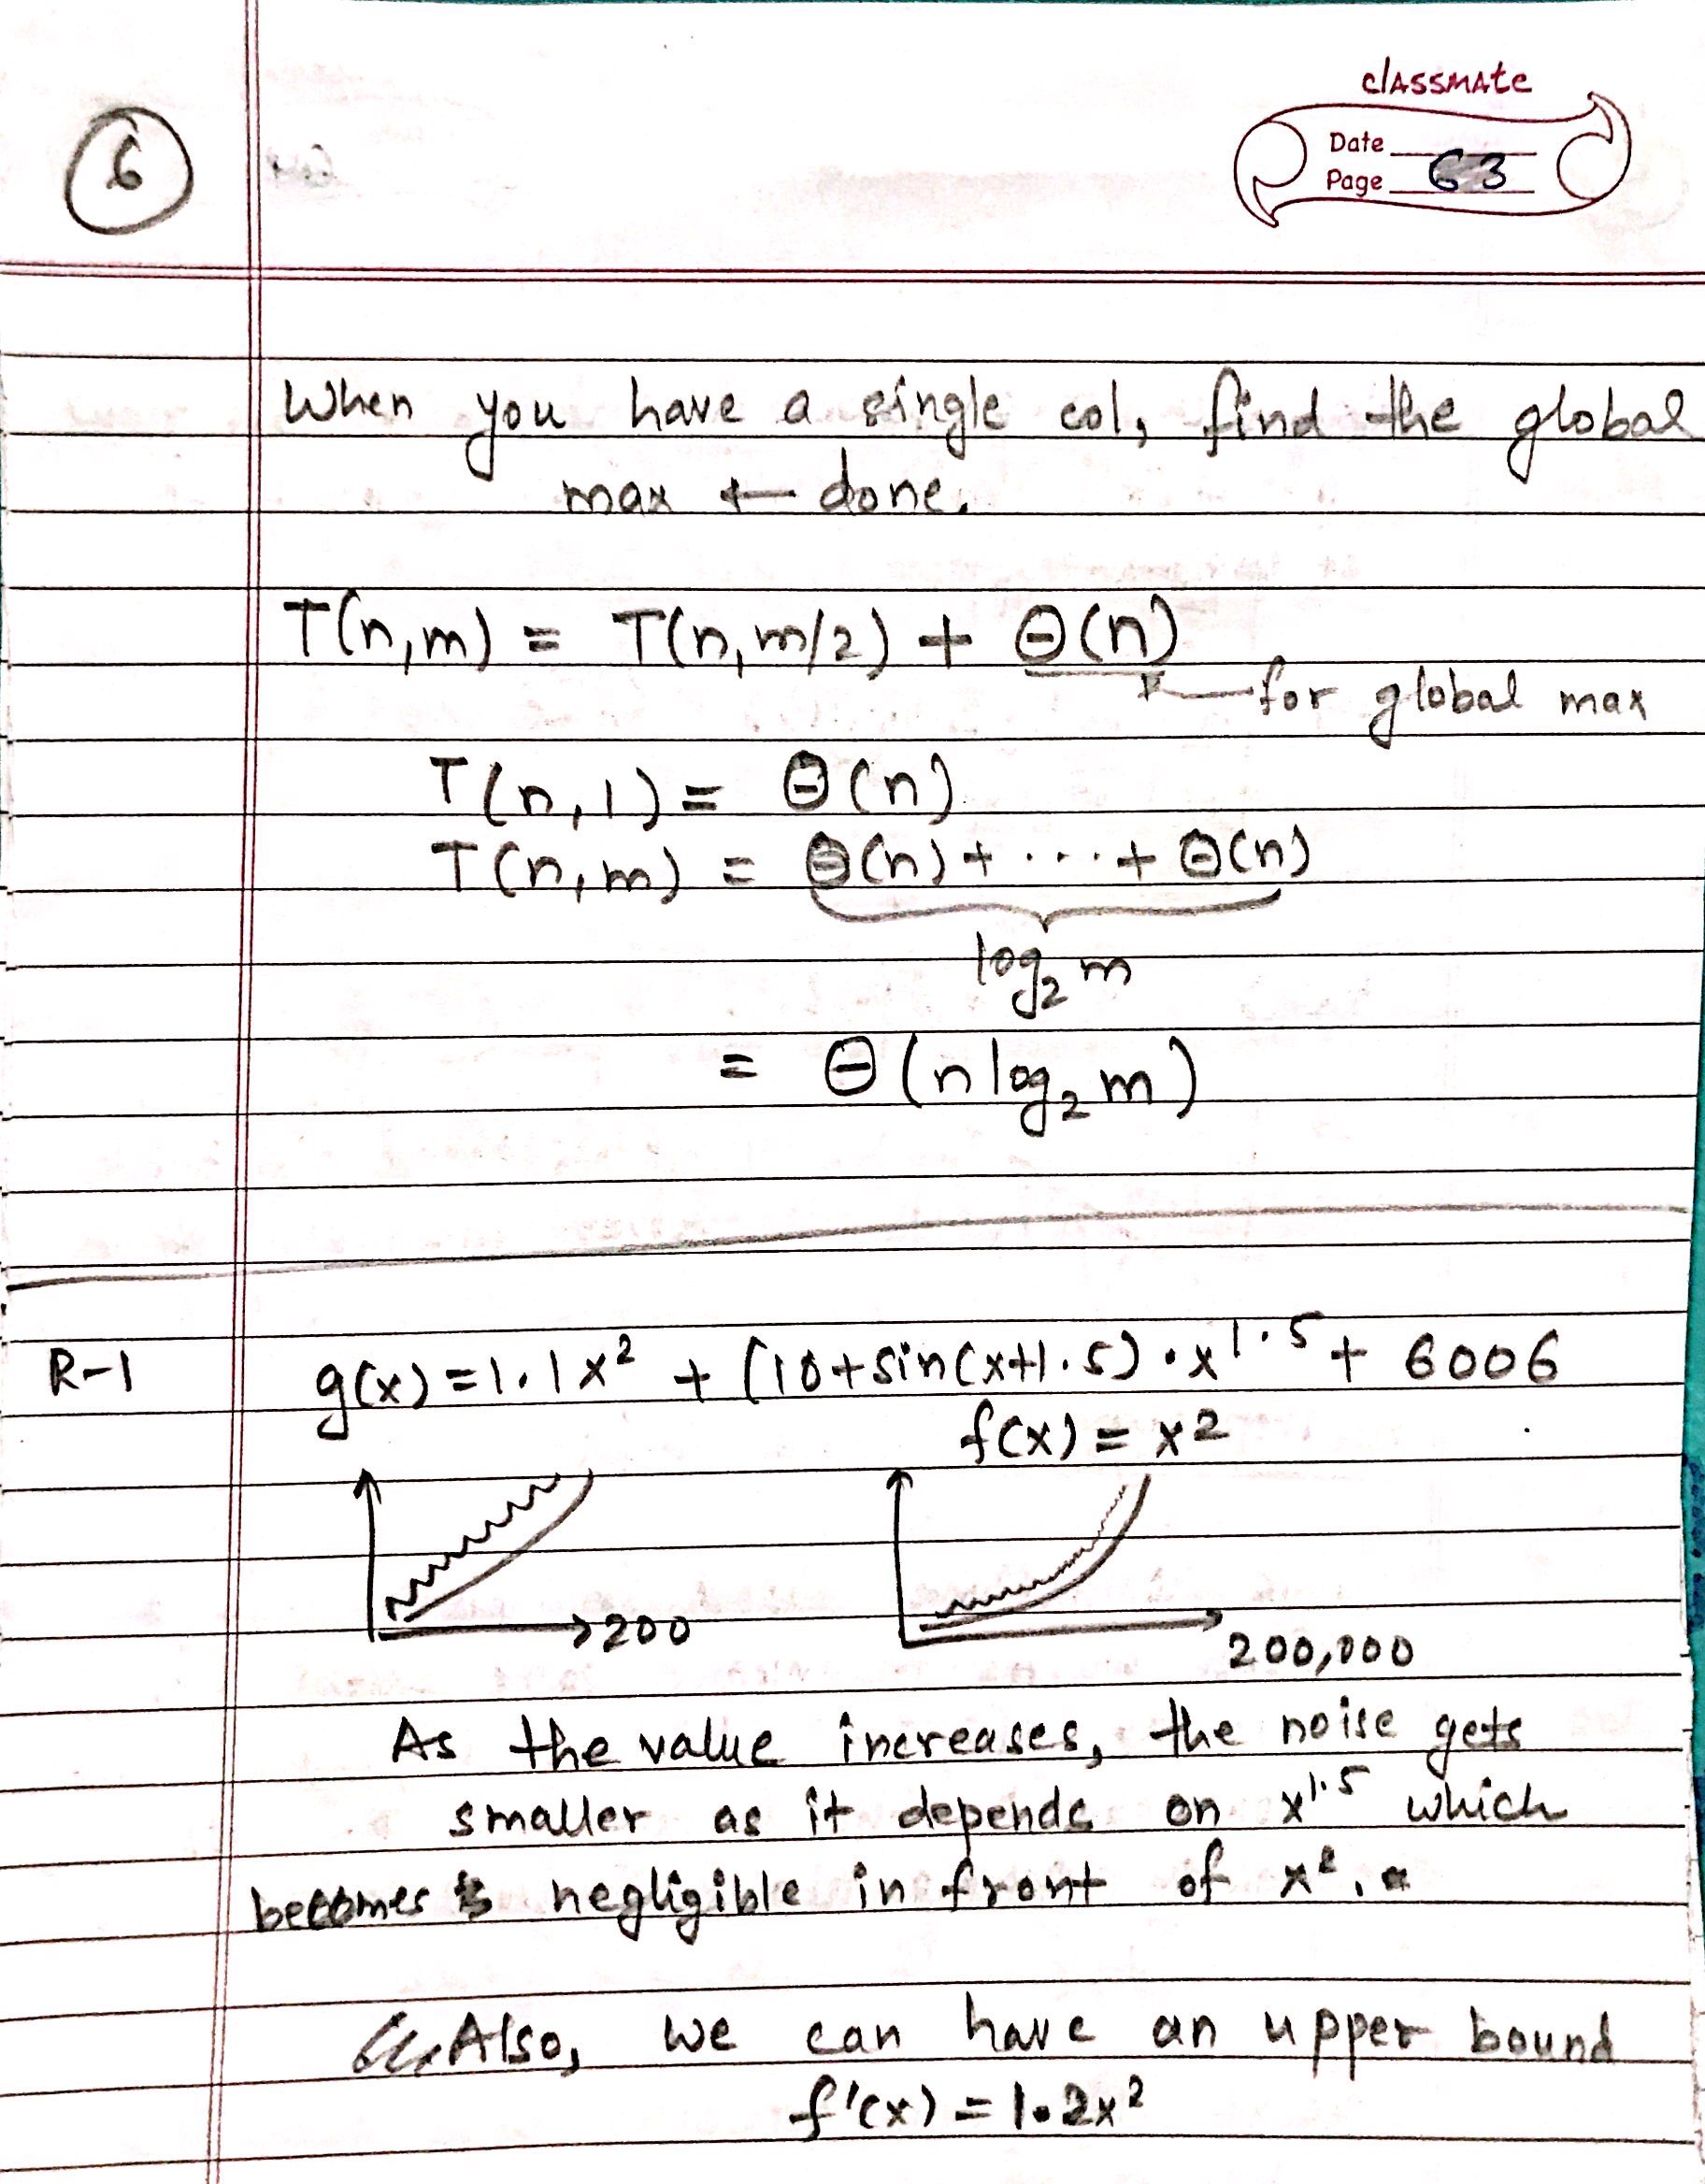 classmate
Date
Page 63
6
When you have a single col, find the global
max ← done.
T(n,m) = T(n,m/2) + Θ(n)
for global max
T(n,1) = Θ(n)
T(n,m) = Θ(n) + ... + Θ(n)
log₂ m
= Θ(n log₂ m)
R-1
g(x) = 1.1x² + (10+sin(x+1.5)·x^1.5 + 6006
f(x) = x²
→200
200,000
As the value increases, the noise gets
smaller as it depends on x^1.5 which
becomes negligible in front of x².
Also, we can have an upper bound
f'(x) = 1.2x²